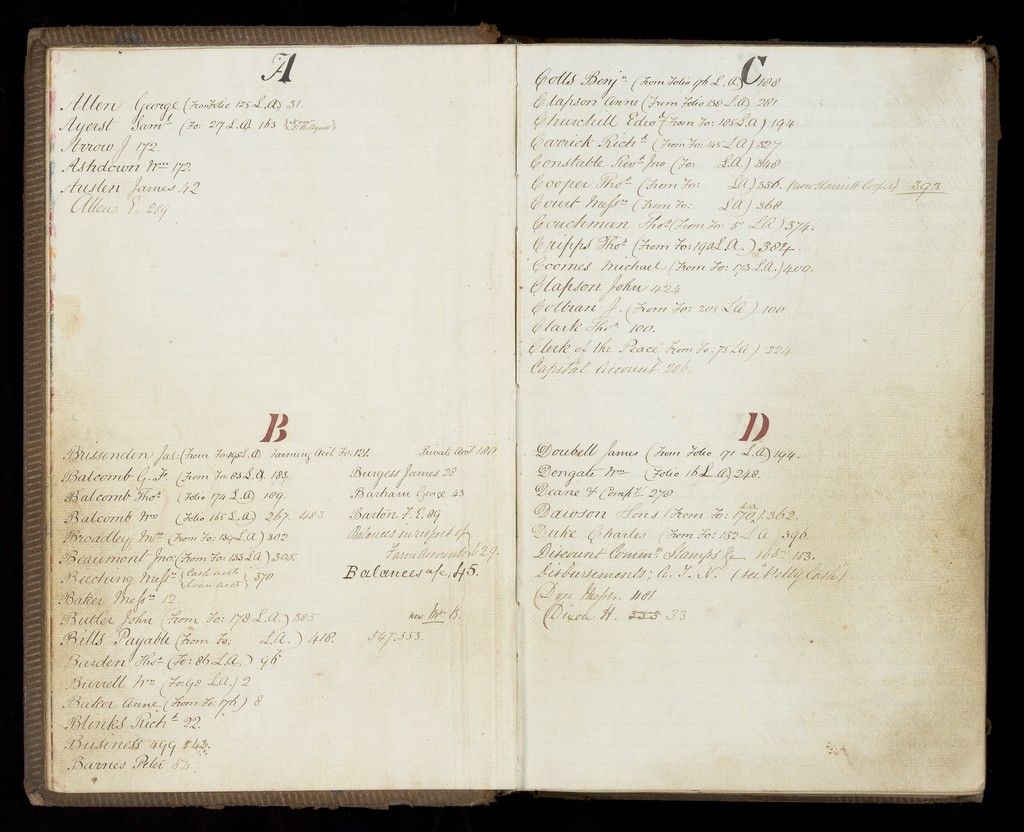 A
Allen George (From Folio 125 L.A) 31.
Ayerst Saml. (Fo: 217 L.A) 163
Arrow J 172.
Ashdown Wm 172.
Austen James 42
Allen E. 289
B
Brissenden Jas (From Fo: 195 L.A) Farming Acct. Fo: 121. Private Acct
Balcomb G. F. (From Fo: 83 L.A) 183.
Balcomb Thos. (Folio 174 L.A) 189.
Balcomb Wm (Folio 165 L.A) 267. 483
Broadley Mrs (From Fo: 139 L.A) 302
Beaumont Jno: (From Fo: 133 L.A) 305.
Beeching Messrs {Cash acct Loan acct} 370
Baker Messrs 12.
Butler John (From Fo: 178 L.A) 385
Bills Payable (From Fo: L.A.) 418. 547. 553.
Barden Thos. (Fo: 86 L.A.) 96
Burrell Wm (Fo: 98 L.A) 2
Baker Anne (From Fo: 176) 8
Blinks Richd. 22.
Business 499
Barnes Peter 54
Burgess James 28
Barham George 43
Barton F. E. 89
Balances in respect of
Farm Account 429.
Balances a/c, 45.
now Mr. B.
C
Colls Benjn. (From Folio 176 L.A) 188
Clapson Anne (From Folio 158 L.A) 281
Churchill Edwd. (From Fo: 185 L.A) 194
Carrick Richd. (From Fo: 45 L.A) 327
Constable Revd. Jno (Fo: L.A) 348
Cooper Thos. (From Fo: L.A) 356. (now Harriett Cooper) 393
Court Messrs (From Fo: L.A) 368
Couchman Thos. (From Fo: 5 L.A) 374.
Cripps Thos. (From Fo: 190 L.A.) 384.
Coomes Michael (From Fo: 173 L.A.) 400.
Clapson John 424
Colbran J. (From Fo: 205 L.A) 100
Clark Thos. 100.
Clerk of the Peace From Fo: 75 L.A) 224
Capital Account 206.
D
Doubell James (From Folio 171 L.A) 194.
Dengate Wm (Folio 16 L.A) 248.
Deane & Compy. 278
Dawson Sons (From Fo: 170 L.A) 362.
Duke Charles (From Fo: 152 L.A) 396.
Discount Commn. Stamps &c 165. 183.
Disbursements; A. T. N. (see Petty Cash)
Dyer Messrs. 481
Dixon H. 353 33